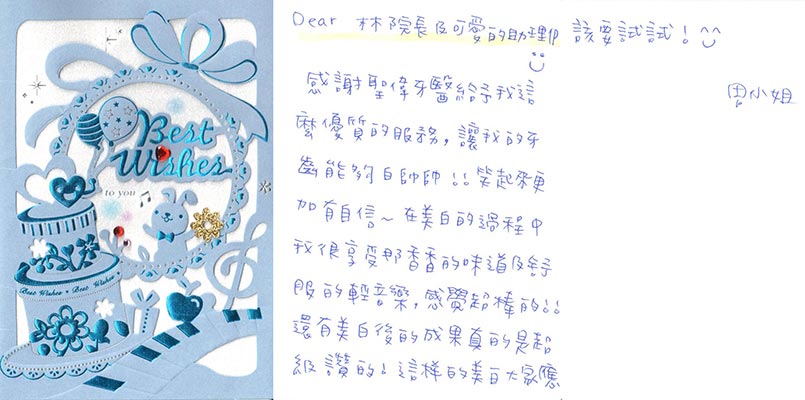 Best
Wishes
to you
Best Wishes • Best Wishes
Dear 林院長及可愛的助理們
感謝聖偉牙醫給予我這
麼優質的服務，讓我的牙
齒能夠白帥帥!! 笑起來更
加有自信～在美白的過程中
我很享受那香香的味道及舒
服的輕音樂，感覺超棒的!!
還有美白後的成果真的是超
級讚的！這樣的美白大家應
該要試試！^^
小姐